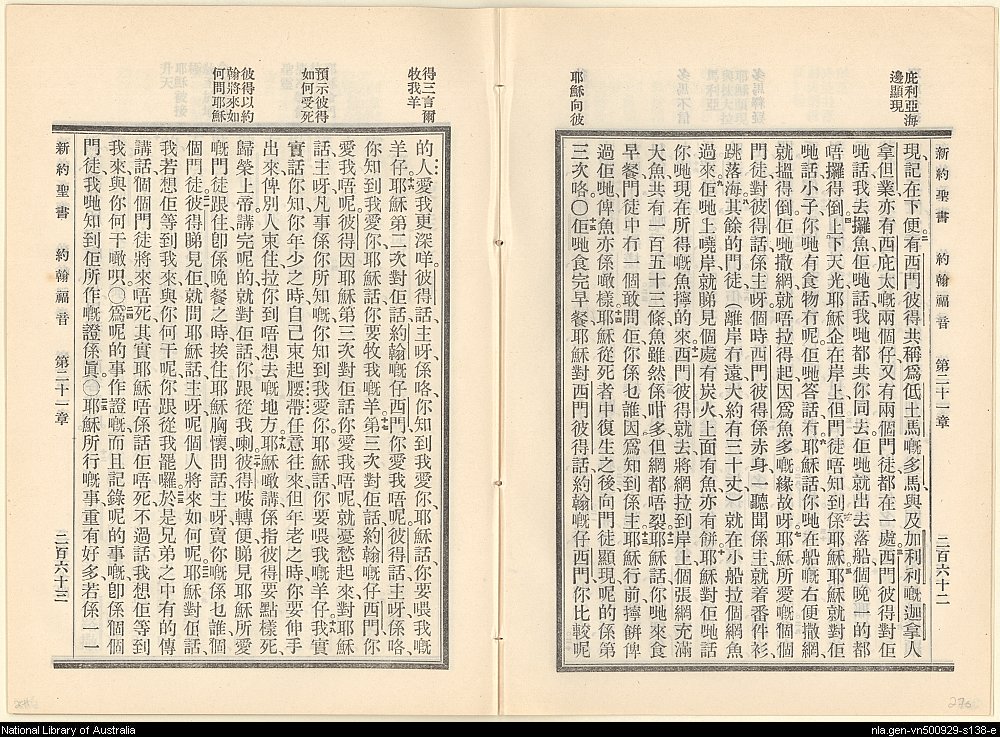 新約聖書 約翰福音 第二十一章 二百六十二
庇利亞海
邊顯現
耶穌向彼
現記在下便有西門彼得共稱爲低土馬嘅多馬與及加利利嘅迦拿人
拿但業亦有西庇太嘅兩個仔又有兩個門徒都在一處西門彼得對佢
哋話我去攞魚佢哋話我哋都共你同去佢哋就出去落船個晚一的都
唔攞得倒上下天光耶穌企在岸上但門徒唔知到係耶穌耶穌就對佢
哋話小子你哋有食物有呢佢哋答話冇耶穌話你哋在船嘅右便撒網
就搵得倒佢哋撒網就唔拉得起因爲魚多嘅緣故呀耶穌所愛嘅個個
門徒對彼得話係主呀個時西門彼得係赤身一聽聞係主就着番件衫
跳落海其餘的門徒（離岸冇遠大約有三十丈）就在小船拉個網魚
過來佢哋上嘵岸就睇見個處有炭火上面有魚亦有餅耶穌對佢哋話
你哋現在所得嘅魚擰的來西門彼得就去將網拉到岸上個張網充滿
大魚共有一百五十三條魚雖然係咁多但網都唔裂耶穌話你哋來食
早餐門徒中冇一個敢問佢你係乜誰因爲知到係主耶穌行前擰餅俾
過佢哋俾魚亦係噉樣耶穌從死者中復生之後向門徒顯現呢的係第
三次咯〇佢哋食完早餐耶穌對西門彼得話約翰嘅仔西門你比較呢
得三言爾
牧我羊
預示彼得
如何受死
彼得以約
翰將來如
何問耶穌
的人愛我更深咩彼得話主呀係咯你知到我愛你耶穌話你要喂我嘅
羊仔耶穌第二次對佢話約翰嘅仔西門你愛我唔呢彼得話主呀係咯
你知到我愛你耶穌話你要牧我嘅羊第三次對佢話約翰嘅仔西門你
愛我唔呢彼得因耶穌第三次對佢話你愛我唔呢就憂愁起來對耶穌
話主呀凡事係你所知嘅你知到我愛你耶穌話你要喂我嘅羊仔我實
實話你知你年少之時自己束起腰帶任意往來但年老之時你要伸手
出來俾別人束住拉你到唔想去嘅地方耶穌噉講係指彼得要點樣死
歸榮上帝講完呢的就對佢話你跟從我喇彼得𠲖轉便睇見耶穌所愛
嘅門徒跟住卽係晚餐之時挨住耶穌胸懷問話主呀賣你嘅係乜誰個
個門徒彼得睇見佢就問耶穌話主呀呢個人將來如何呢耶穌對佢話
我若想佢等到我來與你何干呢你跟從我罷囉於是兄弟之中有的傳
講話個個門徒將來唔死其實耶穌唔係話佢唔死不過話我想佢等到
我來與你何干噉呮〇爲呢的事作證嘅而且記錄呢的事嘅卽係個個
門徒我哋知到佢所作嘅證係眞〇耶穌所行嘅事重有好多若係一一
新約聖書 約翰福音 第二十一章 二百六十三
276
National Library of Australia
nla.gen-vn500929-s138-e